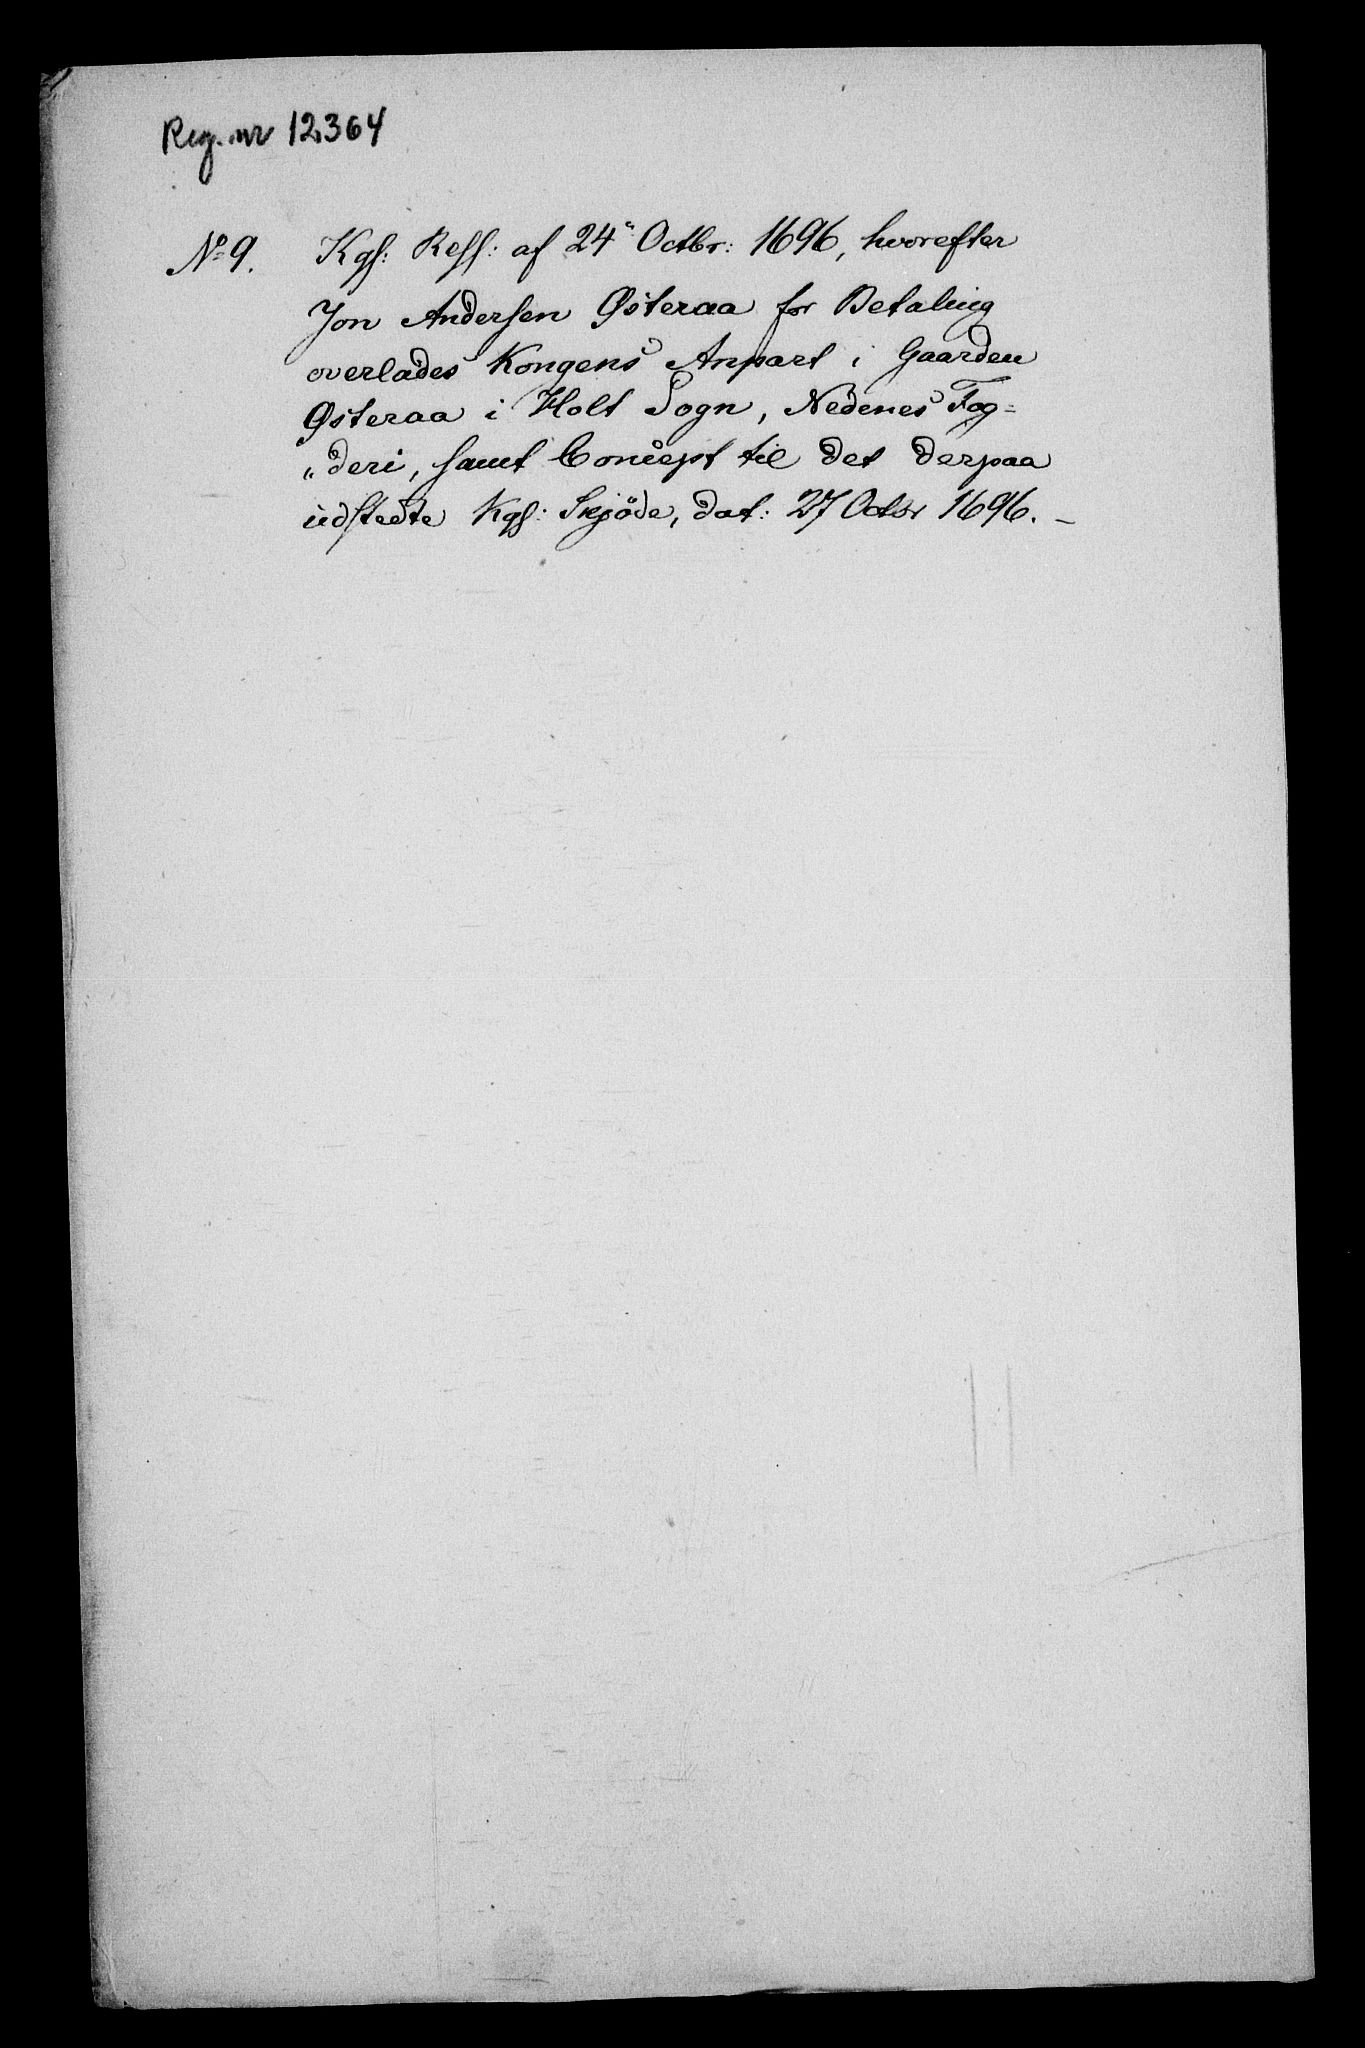 Reg. nr 12364
No 9. Kgl: Resl: af 24de Octbr: 1696, hvorefter
Jon Andersen Østeraa for Betaling
overlades Kongens Anpart i Gaarden
Østeraa i Holt Sogn, Nedenes Fog=
"deri, samt Concept til det derpaa
udstedte Kgl: Skjöde, dat: 27 Octbr 1696. –